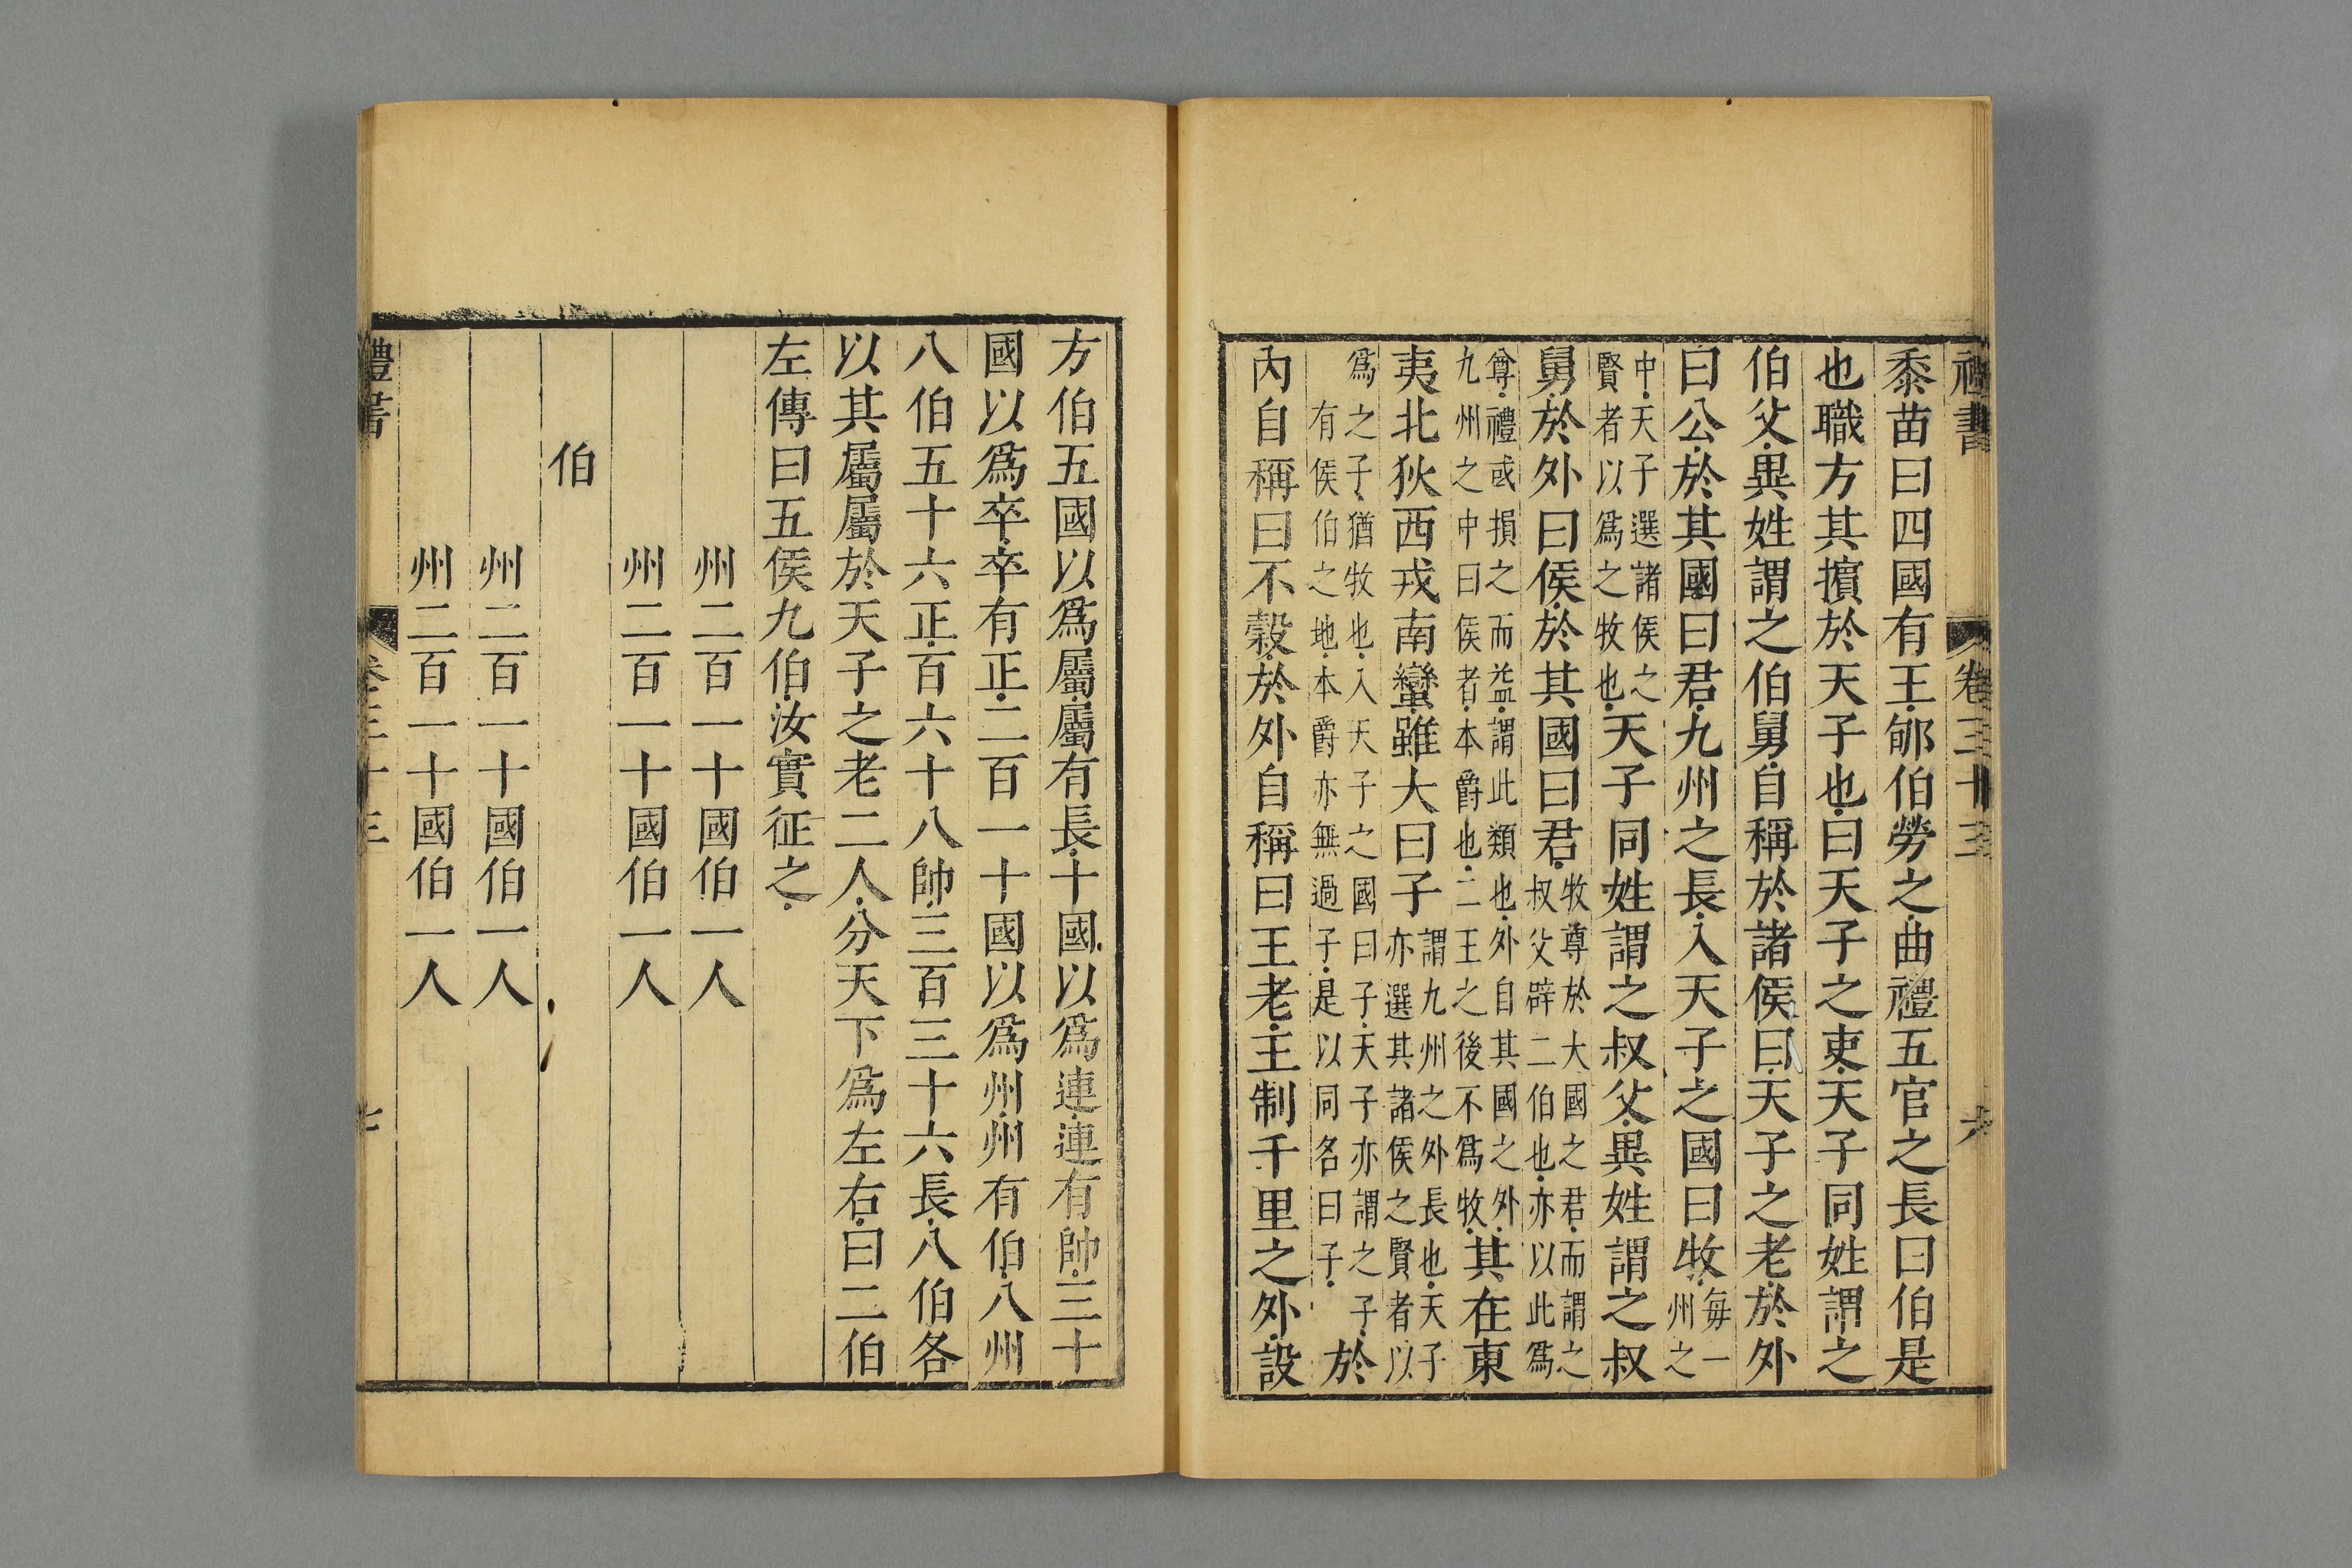 禮書 卷三十三 六
黍苗曰四國有王郇伯勞之曲禮五官之長曰伯是
也職方其擯於天子也曰天子之吏天子同姓謂之
伯父異姓謂之伯舅自稱於諸侯曰天子之老於外
曰公於其國曰君九州之長入天子之國曰牧每一
州之
中天子選諸侯之
賢者以爲之牧也天子同姓謂之叔父異姓謂之叔
舅於外曰侯於其國曰君牧尊於大國之君而謂之
叔父辟二伯也亦以此爲
尊禮或損之而益謂此類也外自其國之外
九州之中曰侯者本爵也二王之後不爲牧其在東
夷北狄西戎南蠻雖大曰子謂九州之外長也天子
亦選其諸侯之賢者以
爲之子猶牧也入天子之國曰子天子亦謂之子
有侯伯之地本爵亦無過子是以同名曰子於
內自稱曰不穀於外自稱曰王老主制千里之外設
方伯五國以爲屬屬有長十國以爲連連有帥三十
國以爲卒卒有正二百一十國以爲州州有伯八州
八伯五十六正百六十八帥三百三十六長八伯各
以其屬屬於天子之老二人分天下爲左右曰二伯
左傳曰五侯九伯汝實征之
州二百一十國伯一人
州二百一十國伯一人
伯
州二百一十國伯一人
州二百一十國伯一人
禮書 卷三十三 七